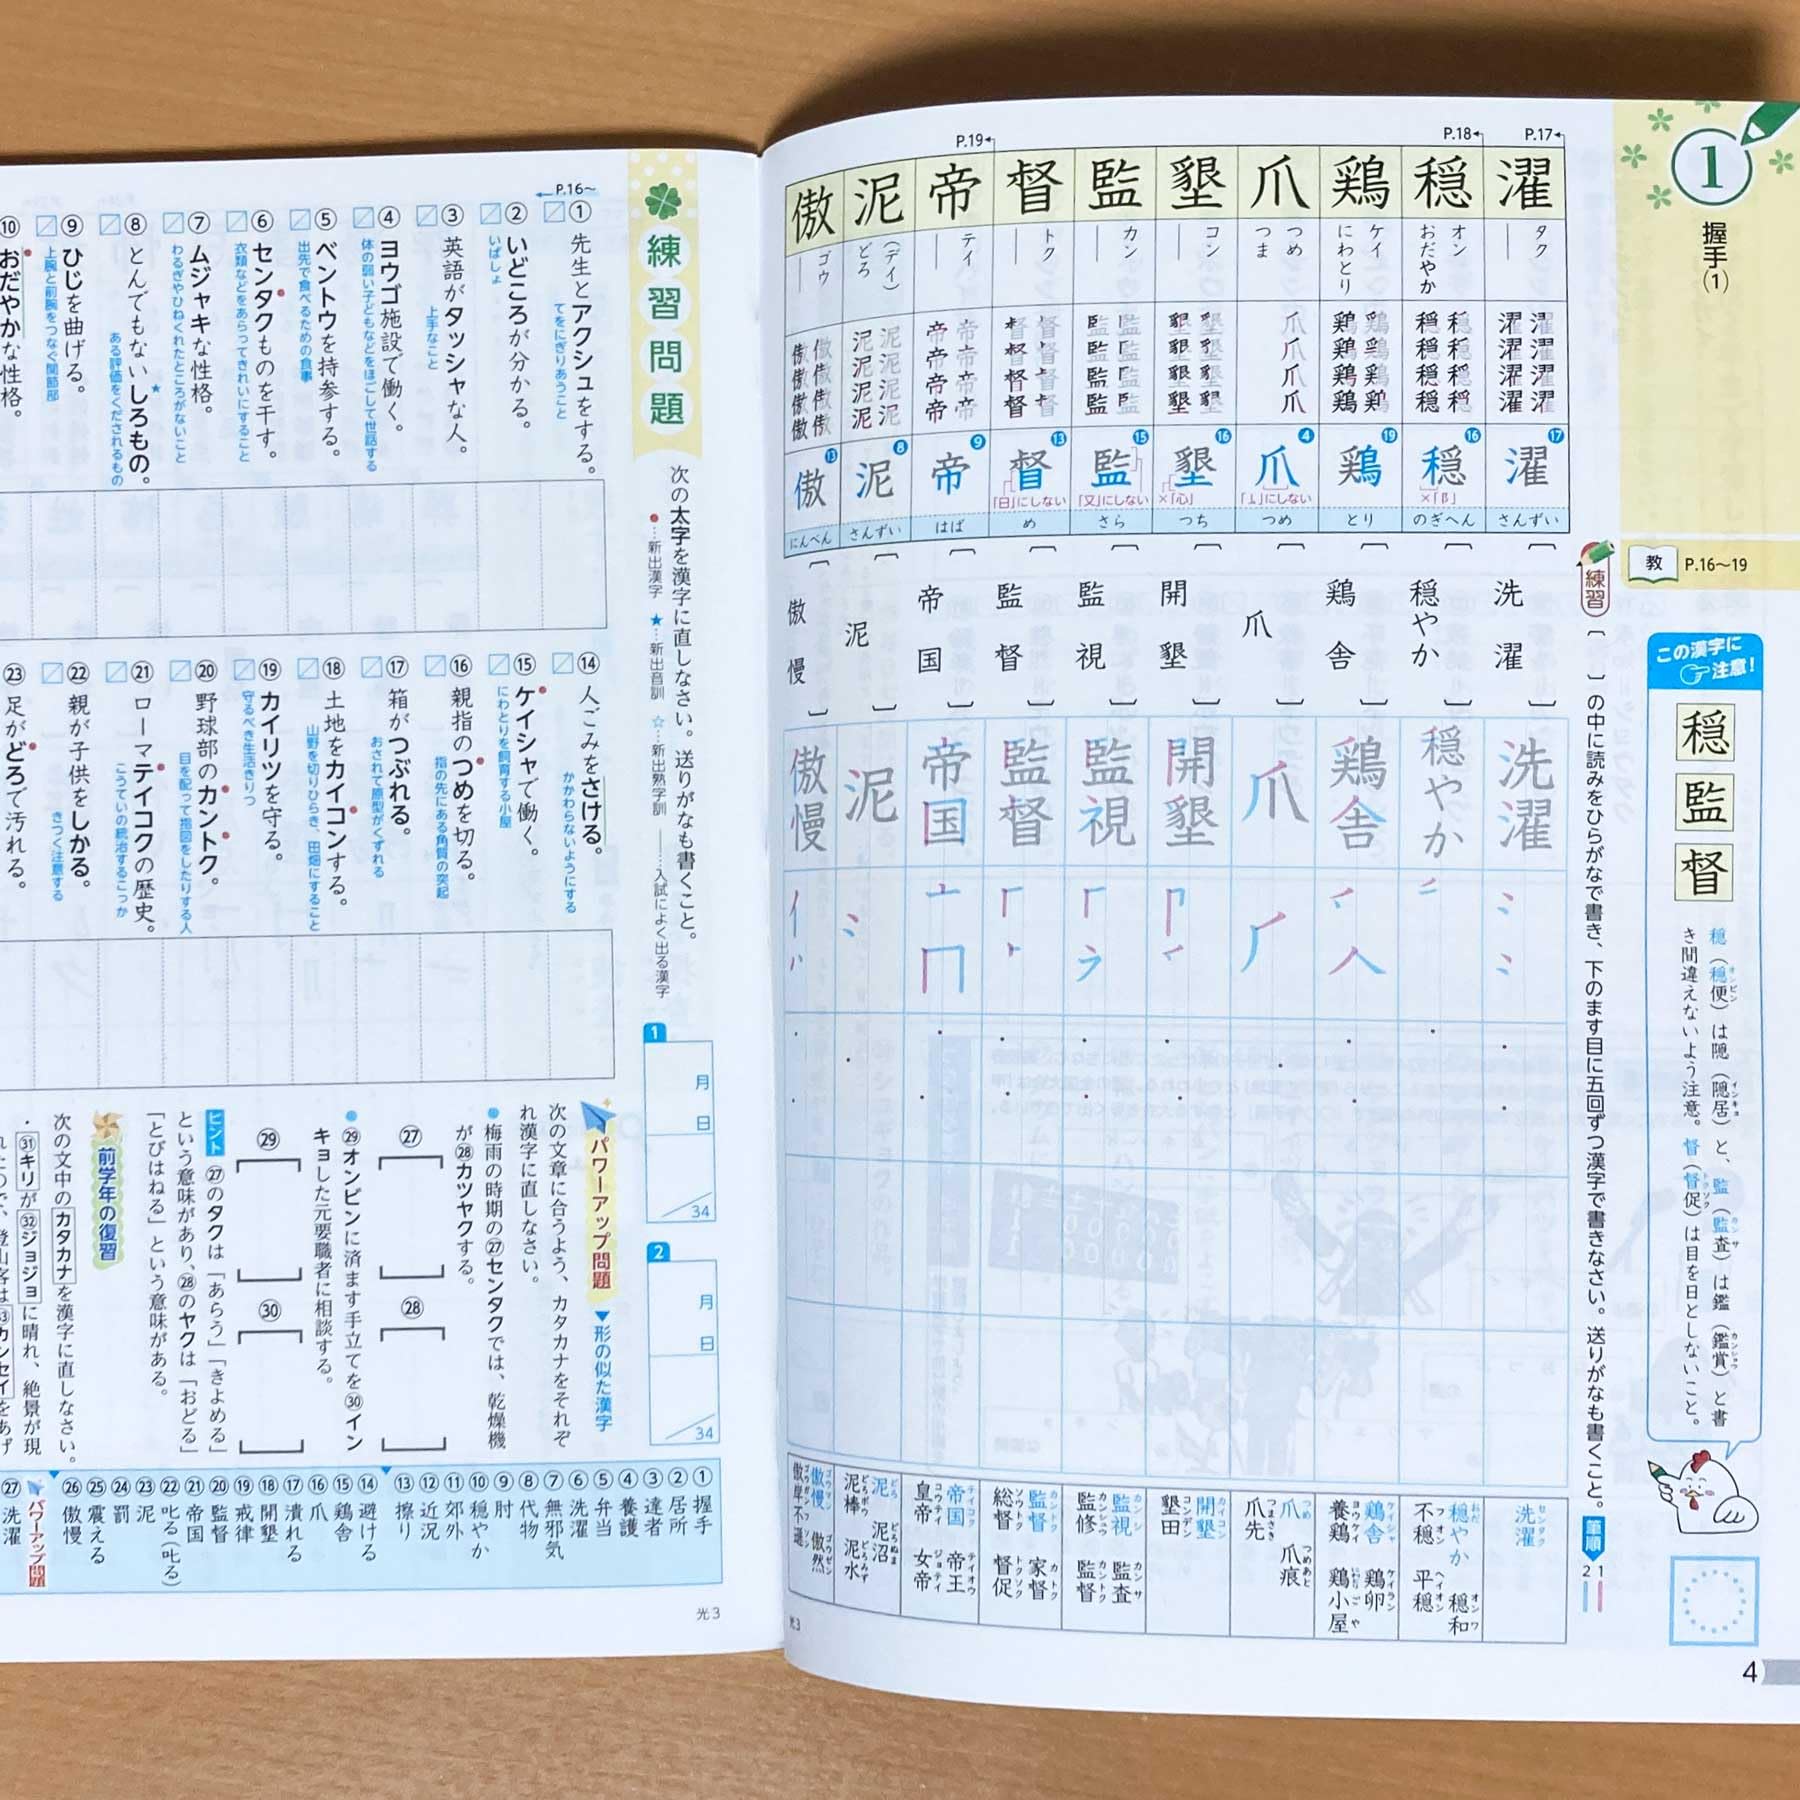 1
握手(1)
教 P.16〜19
この漢字に注意!
穏
監
督
穏(穏便)は隠(隠居)と、監(監査)は鑑(鑑賞)と書
き間違えないよう注意。督(督促)は目を日としないこと。
練習〔 〕の中に読みをひらがなで書き、下のます目に五回ずつ漢字で書きなさい。送りがなも書くこと。
筆順 1 2
P.17
P.18
P.19
濯 タク 17 さんずい
洗濯
洗濯
穏 オン おだやか 16 ×「阝」 のぎへん
穏やか
穏やか 穏和
不穏 平穏
鶏 ケイ にわとり 19 とり
鶏舎
鶏舎 鶏卵
養鶏 鶏小屋
爪 つめ つま 4 「⊥」にしない つめ
爪
爪 爪痕
爪先
墾 コン 16 ×「心」 つち
開墾
開墾
墾田
監 カン 15 「又」にしない さら
監視
監視 監査
監修 監督
督 トク 13 「日」にしない め
監督
監督 家督
総督 督促
帝 テイ 9 はば
帝国
帝国 帝王
皇帝 女帝
泥 (デイ) どろ 8 さんずい
泥
泥 泥沼
泥棒 泥水
傲 ゴウ 13 にんべん
傲慢
傲慢 傲然
傲岸不遜
光3
4
練習問題
次の太字を漢字に直しなさい。送りがなも書くこと。
●…新出漢字 ★…新出音訓 ☆…新出熟字訓 ――…入試によく出る漢字
P.16〜
①先生とアクシュをする。
てをにぎりあうこと
②いどころが分かる。
いばしょ
③英語がタッシャな人。
上手なこと
④ヨウゴ施設で働く。
体の弱い子どもなどをほごして世話する
⑤ベントウを持参する。
出先で食べるための食事
⑥センタクものを干す。
衣類などをあらってきれいにすること
⑦ムジャキな性格。
わるぎやひねくれたところがないこと
⑧とんでもないしろもの。
ある評価をくだされるもの
⑨ひじを曲げる。
上腕と前腕をつなぐ関節部
⑩おだやかな性格。
⑭人ごみをさける。
かかわらないようにする
⑮ケイシャで働く。
にわとりを飼育する小屋
⑯親指のつめを切る。
指の先にある角質の突起
⑰箱がつぶれる。
おされて原型がくずれる
⑱土地をカイコンする。
山野を切りひらき、田畑にすること
⑲カイリツを守る。
守るべき生活きりつ
⑳野球部のカントク。
目を配って指図をしたりする人
㉑ローマテイコクの歴史。
こうていの統治するこっか
㉒親が子供をしかる。
きつく注意する
㉓足がどろで汚れる。
1
月
日
/34
2
月
日
/34
パワーアップ問題 ▼形の似た漢字
次の文章に合うよう、カタカナをそれぞ
れ漢字に直しなさい。
●梅雨の時期の㉗センタクでは、乾燥機
が㉘カツヤクする。
●㉙オンビンに済ます手立てを㉚イン
キョした元要職者に相談する。
㉗
㉘
㉙
㉚
ヒント ㉗のタクは「あらう」「きよめる」
という意味があり、㉘のヤクは「おどる」
「とびはねる」という意味がある。
前学年の復習
次の文中のカタカナを漢字に直しなさい。
・㉛キリが㉜ジョジョに晴れ、絶景が現
①握手
②居所
③達者
④養護
⑤弁当
⑥洗濯
⑦無邪気
⑧代物
⑨肘
⑩穏やか
⑪郊外
⑫近況
⑬擦り
⑭避ける
⑮鶏舎
⑯爪
⑰潰れる
⑱開墾
⑲戒律
⑳監督
㉑帝国
㉒叱る(𠮟る)
㉓泥
㉔罰
㉕震える
㉖傲慢
パワーアップ問題
㉗洗濯
光3